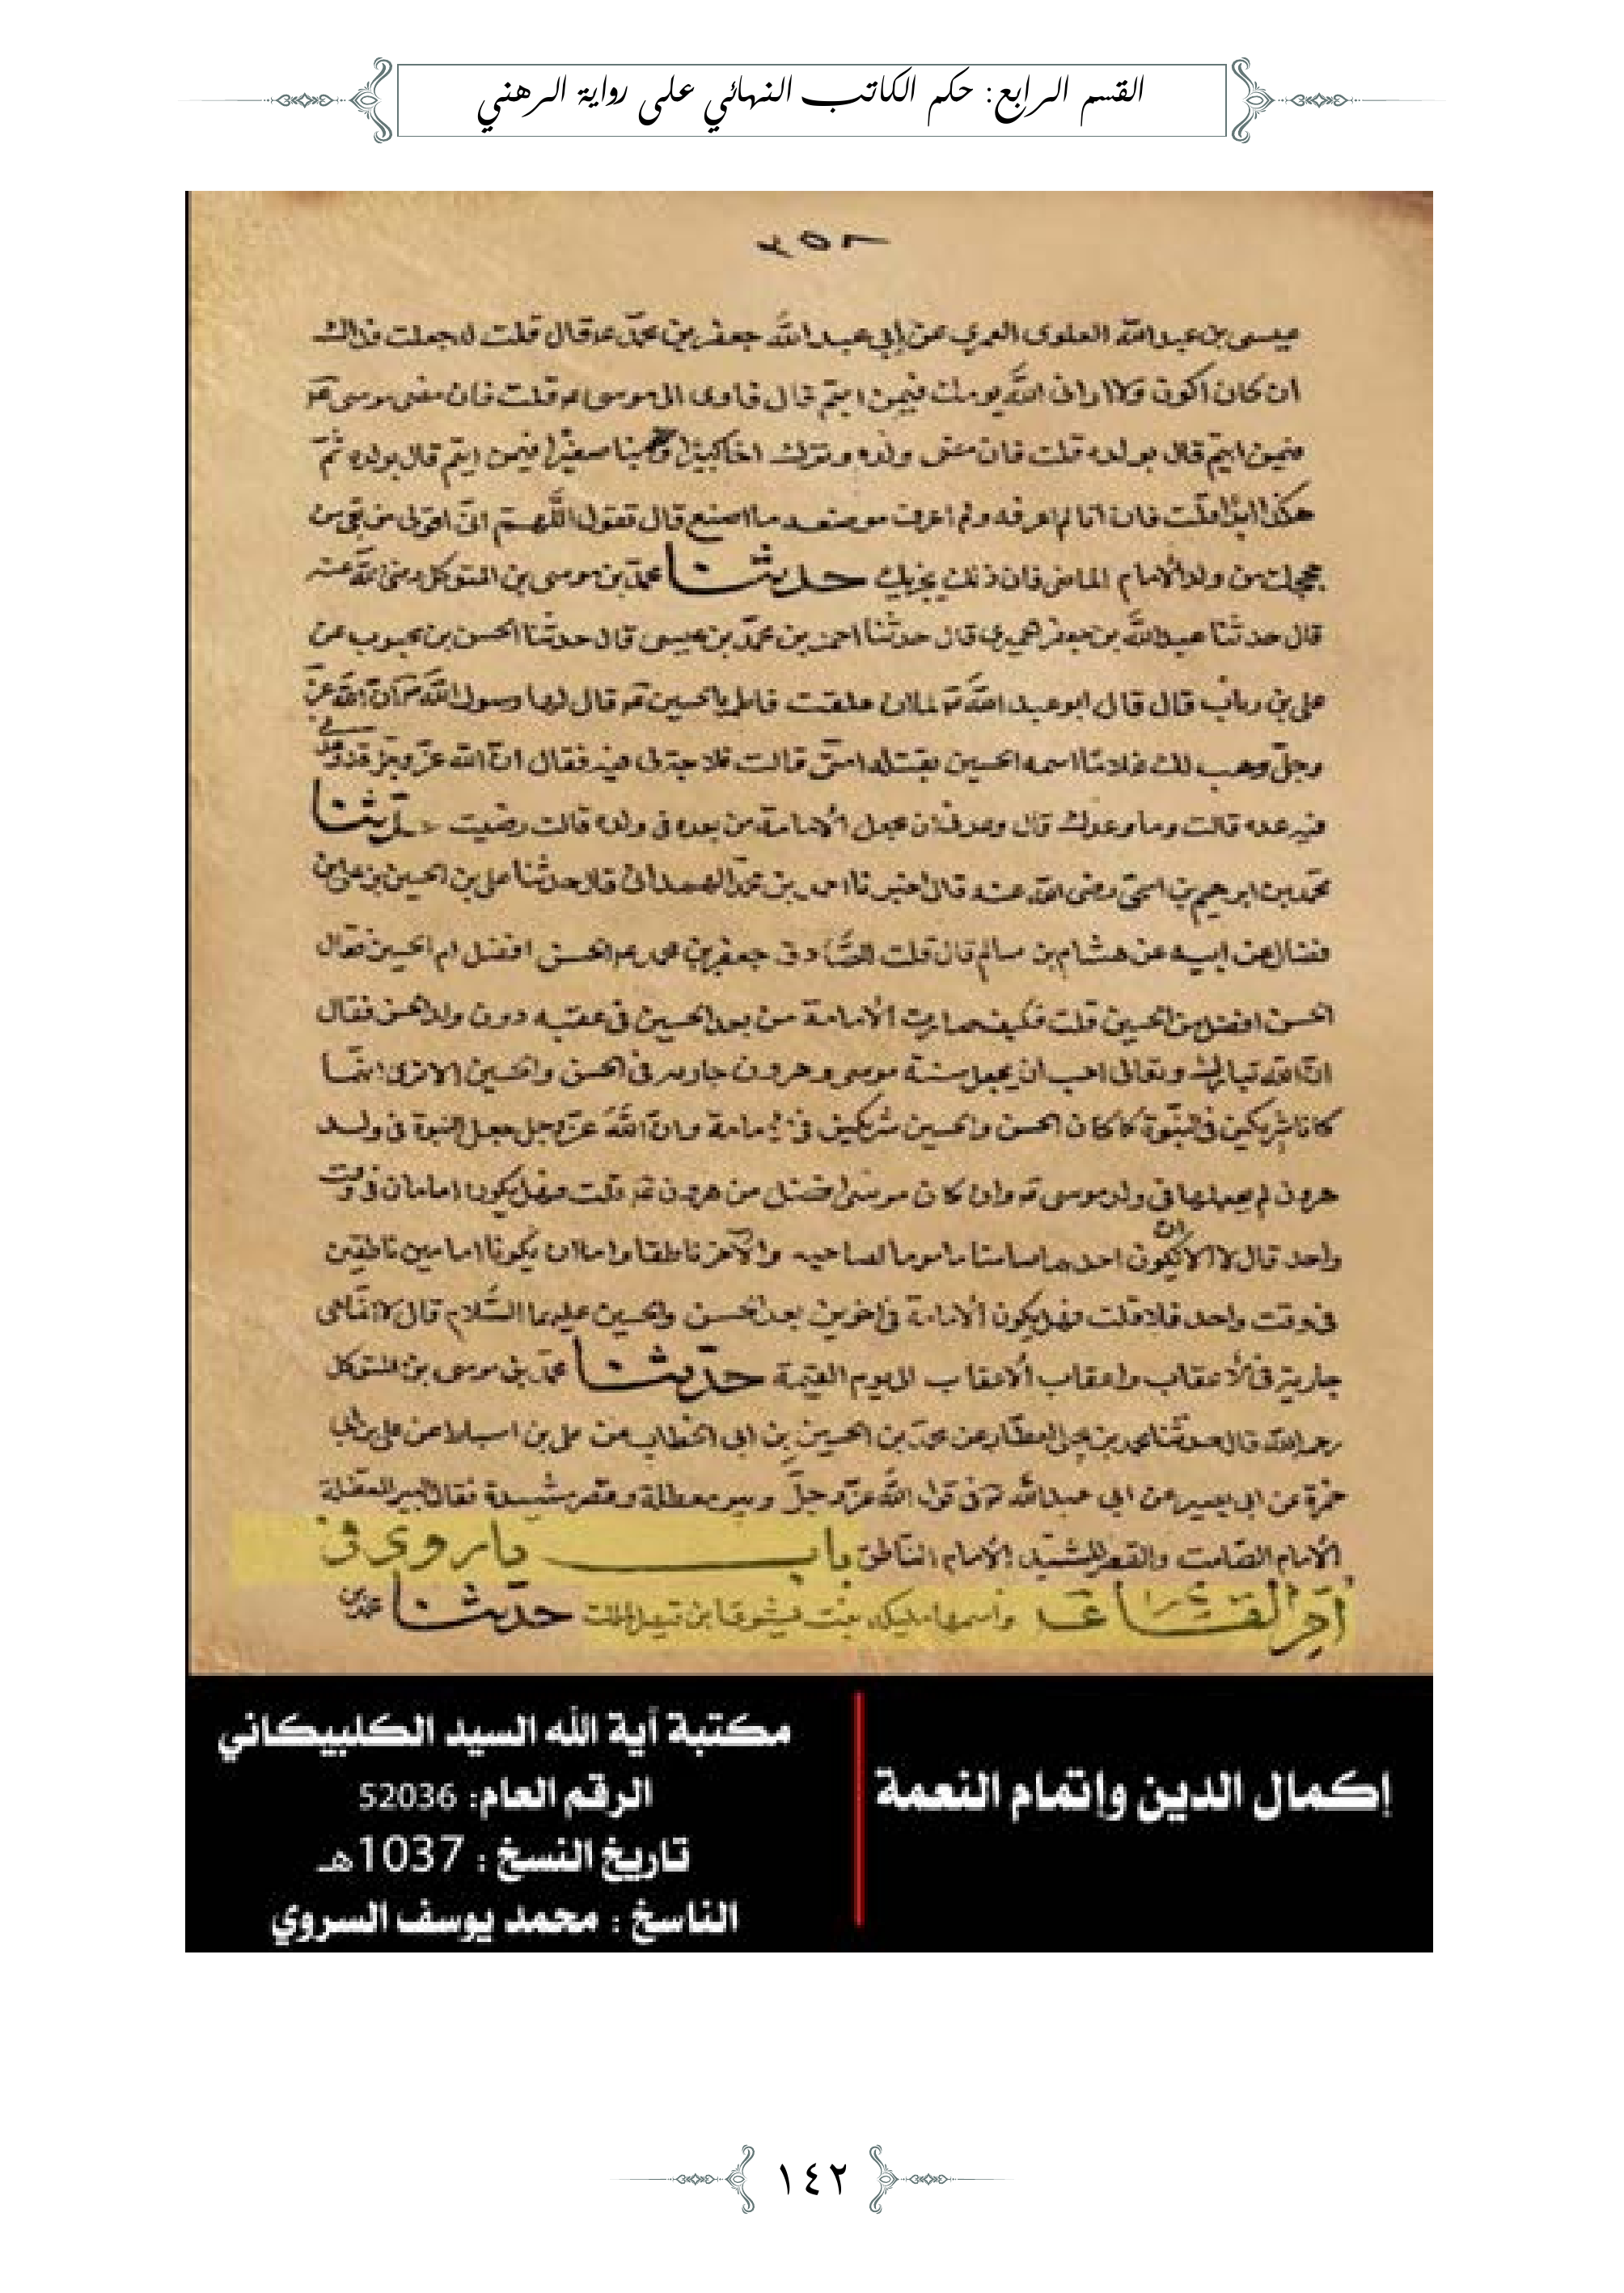 القسم الرابع: حكم الكاتب النهائي على رواية الرهني
٢٥٨
عيسى بن عبد الله العلوى العمري عن ابي عبد الله جعفر بن محمد ع قال قلت له جعلت فداك
ان كان كون ولا ارانى الله يومك فبمن ايتم قال فاوى الى موسى ع قلت فان مضى موسى ع
فبمن ايتم قال بولده قلت فان مضى ولده وترك اخا كبيرا وابنا صغيرا فبمن ايتم قال بولده ثم
هكذا ابدا قلت فان انا لم اعرفه ولم اعرف موضعه ما اصنع قال تقول اللهم انى اتولى من بقى من
حججك من ولد الامام الماضى فان ذلك يجزيك حدثنا محمد بن موسى بن المتوكل رضى الله عنه
قال حدثنا عبد الله بن جعفر الحميرى قال حدثنا احمد بن محمد بن عيسى قال حدثنا الحسن بن محبوب عن
على بن رياب قال قال ابو عبد الله ع لما ان علقت فاطمة بالحسين ع قال لها رسول الله ص ان الله عز
وجل وهب لك غلاما اسمه الحسين يقتله امتى قالت فلا حاجة لى فيه فقال ان الله عز وجل قد وعدنى
فيه عدة قالت وما وعدك قال وعدنى ان يجعل الامامة من بعده فى ولده قالت رضيت حدثنا
محمد بن ابرهيم بن اسحق رضى الله عنه قال اخبرنا احمد بن محمد الهمدانى قال حدثنا على بن الحسين بن على بن
فضال عن ابيه عن هشام بن سالم قال قلت للصادق جعفر بن محمد ع الحسن افضل ام الحسين فقال
الحسن افضل من الحسين قلت فكيف صارت الامامة من بعد الحسين فى عقبه دون ولد الحسن فقال
ان الله تبارك وتعالى احب ان يجعل سنة موسى وهرون جارية فى الحسن والحسين الا ترى انهما
كانا شريكين فى النبوة كما كان الحسن والحسين شريكين فى الامامة وان الله عز وجل جعل النبوة فى ولد
هرون لم يجعلها فى ولد موسى ع وان كان موسى افضل من هرون ع قلت فهل يكون امامان فى وقت
واحد قال لا الا ان يكون احدهما صامتا ماموما لصاحبه والآخر ناطقا واما ان يكونا امامين ناطقين
فى وقت واحد فلا قلت فهل يكون الامامة فى اخوين بعد الحسن والحسين عليهما السلام قال لا انما هى
جارية فى الاعقاب واعقاب الاعقاب الى يوم القيمة حدثنا محمد بن موسى بن المتوكل
رحمه الله قال حدثنا محمد بن يحيى العطار عن محمد بن الحسين بن ابى الخطاب عن على بن اسباط عن على بن ابى
حمزة عن ابى بصير عن ابى عبد الله ع فى قول الله عز وجل وبير معطلة وقصر مشيد فقال البير المعطلة
الامام الصامت والقصر المشيد الامام الناطق باب ما روى فى
ام القائم واسمها مليكه بنت يشوعا بن قيصر الملك حدثنا محمد بن
إكمال الدين وإتمام النعمة
مكتبة آية الله السيد الكلبيكاني
الرقم العام: 52036
تاريخ النسخ : 1037هـ
الناسخ : محمد يوسف السروي
١٤٢